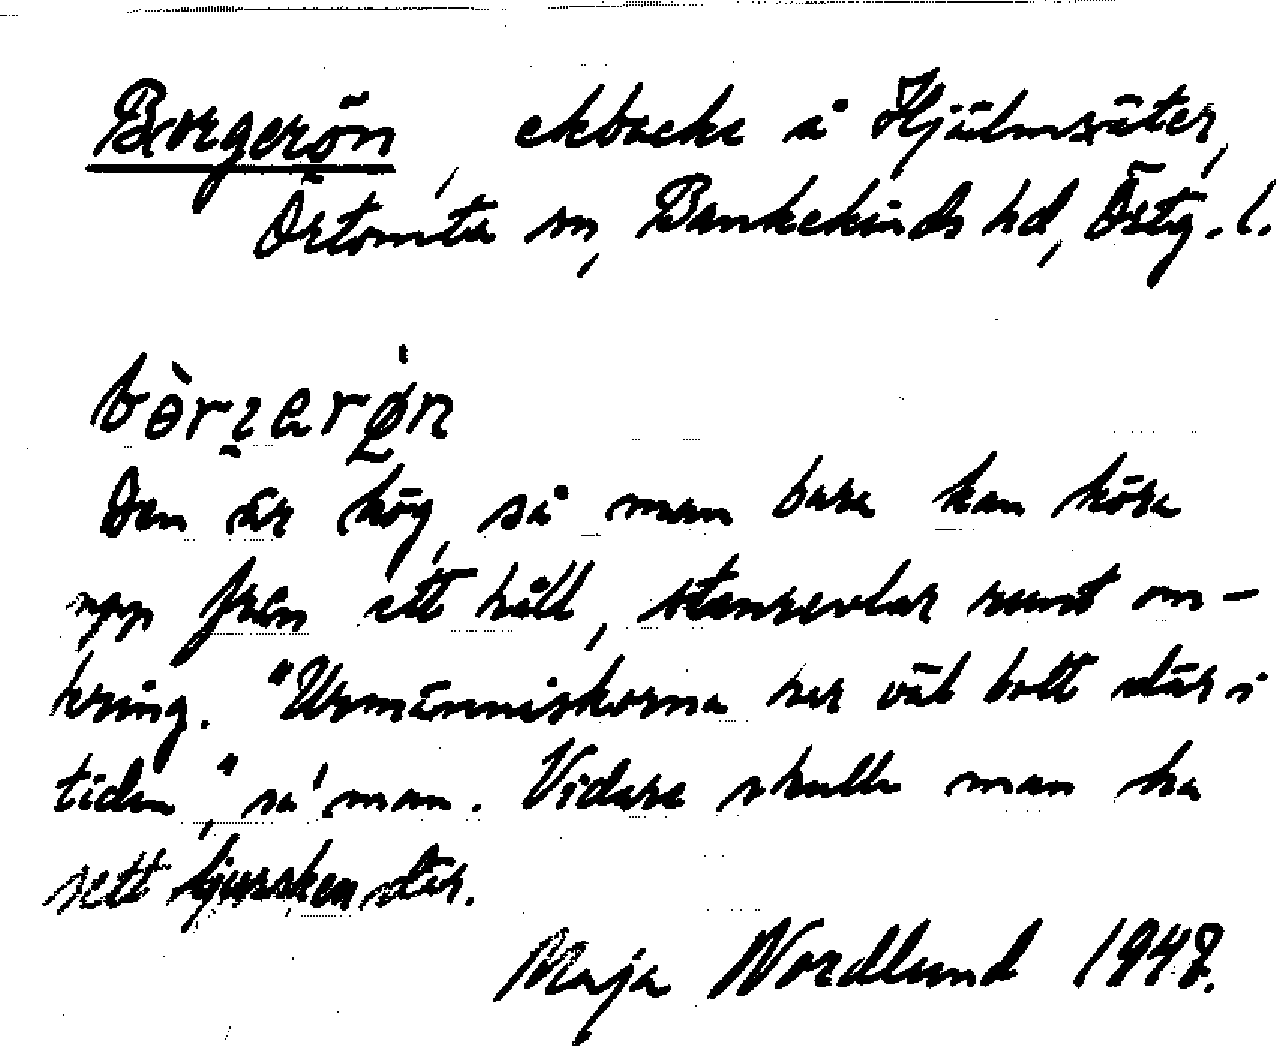 Borgerön, ekbacke å Hjälmsäter,
Örtomta sn, Bankekinds hd, Östg. l.
Den är hög, så man bara kan köra
upp från ett håll, stenrevlar runt om-
kring. "Urmänniskorna har väl bott där i
tiden," sa' man. Vidare skulle man ha
sett ljussken där.
Maja Nordlund 1948.